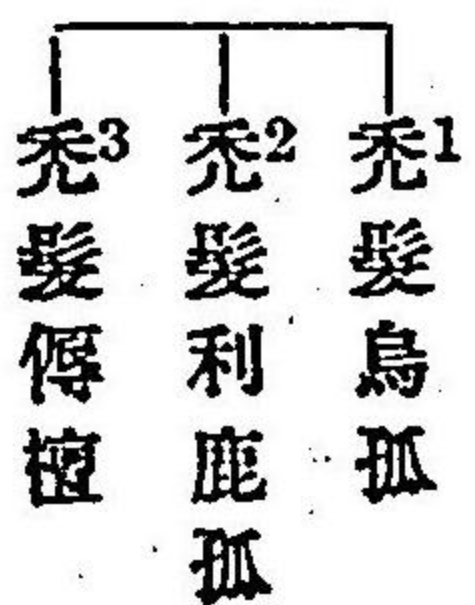 禿1髮烏孤
禿2髮利鹿孤
禿3髮傉檀